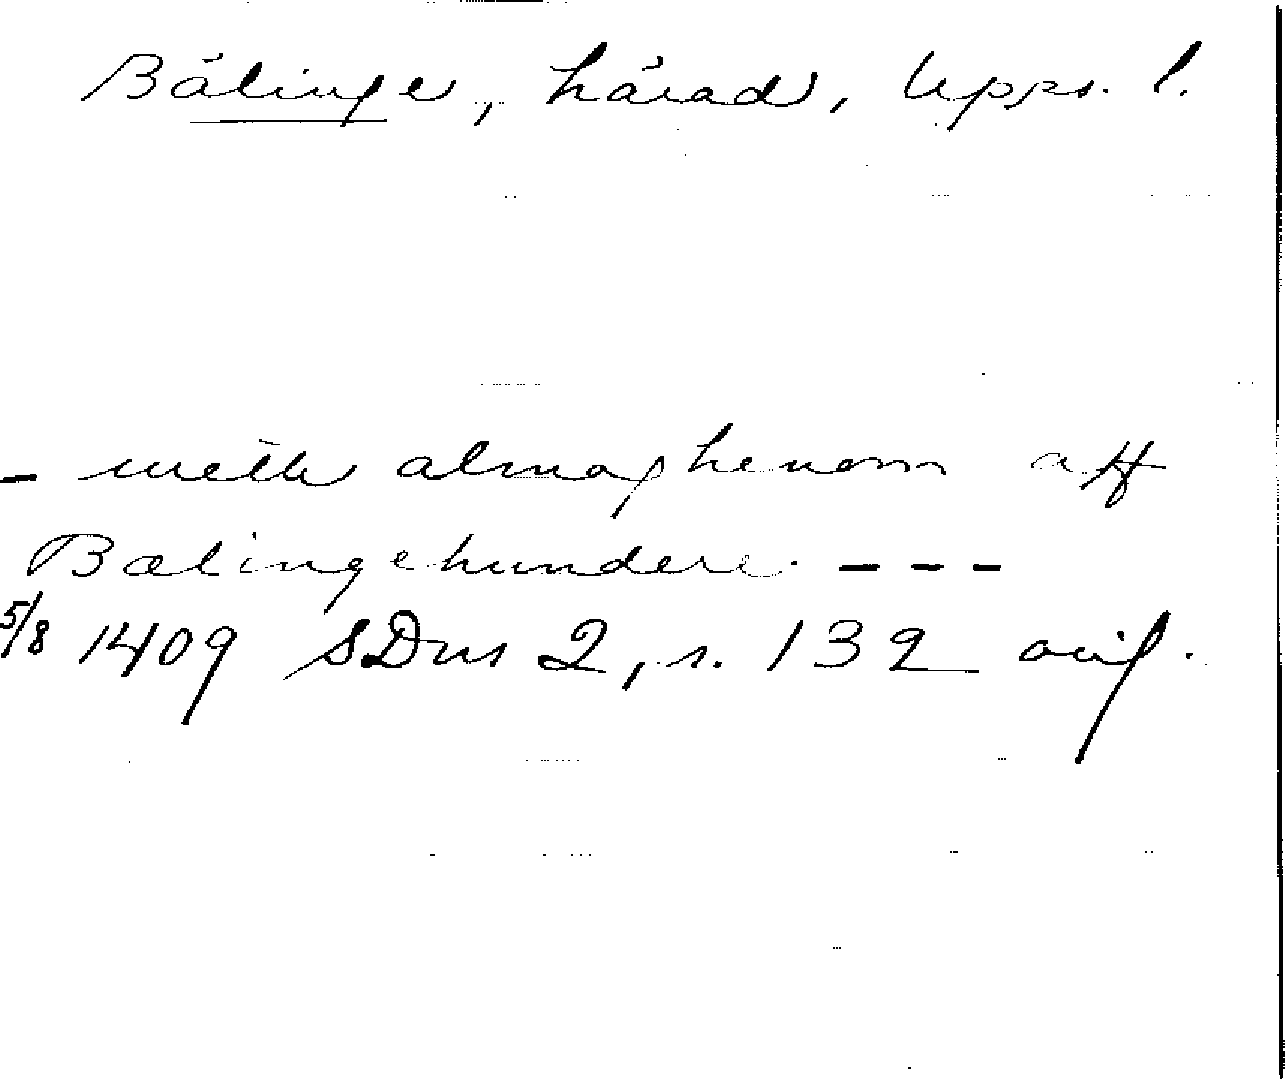 Bälinge, härad, Upps. l.
- meth almoghenom aff
Bælingehundere. - - -
5/8 1409 SDns 2, s. 132 avig.